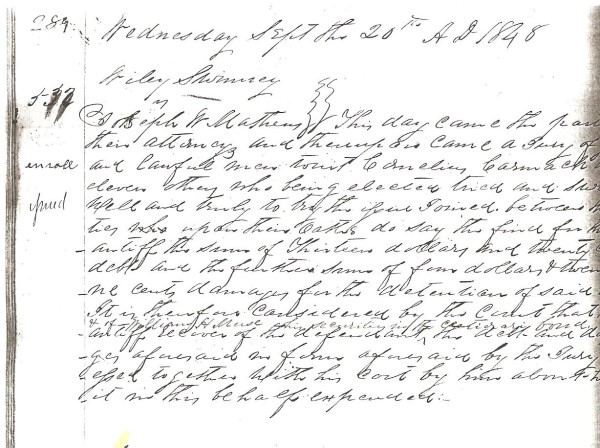 289
Wednesday Sept the 20th A D 1848
Wiley Swinney
537
vs
Joseph W Mathews This day came the par
their attorneys and thereupon came a Jury of
enroll
and Lawful men towit Cornelius Carmack
eleven others who being elected tried and Sw
Well and truly to try the issue Joined between
ties who upon their Oaths do say the find for
antiff the sum of Thirteen dollars and twenty
debt and the further sum of four dollars & twen
ne cents damages for the detention of said
It is therefore Considered by the Court that
& of William H Muse his security in the certiorari bond
antiff recover of the defendant the debt and da
ges aforesaid in form aforesaid by the Jury
essed together with his Cost by him about
it in this behalf expended.-